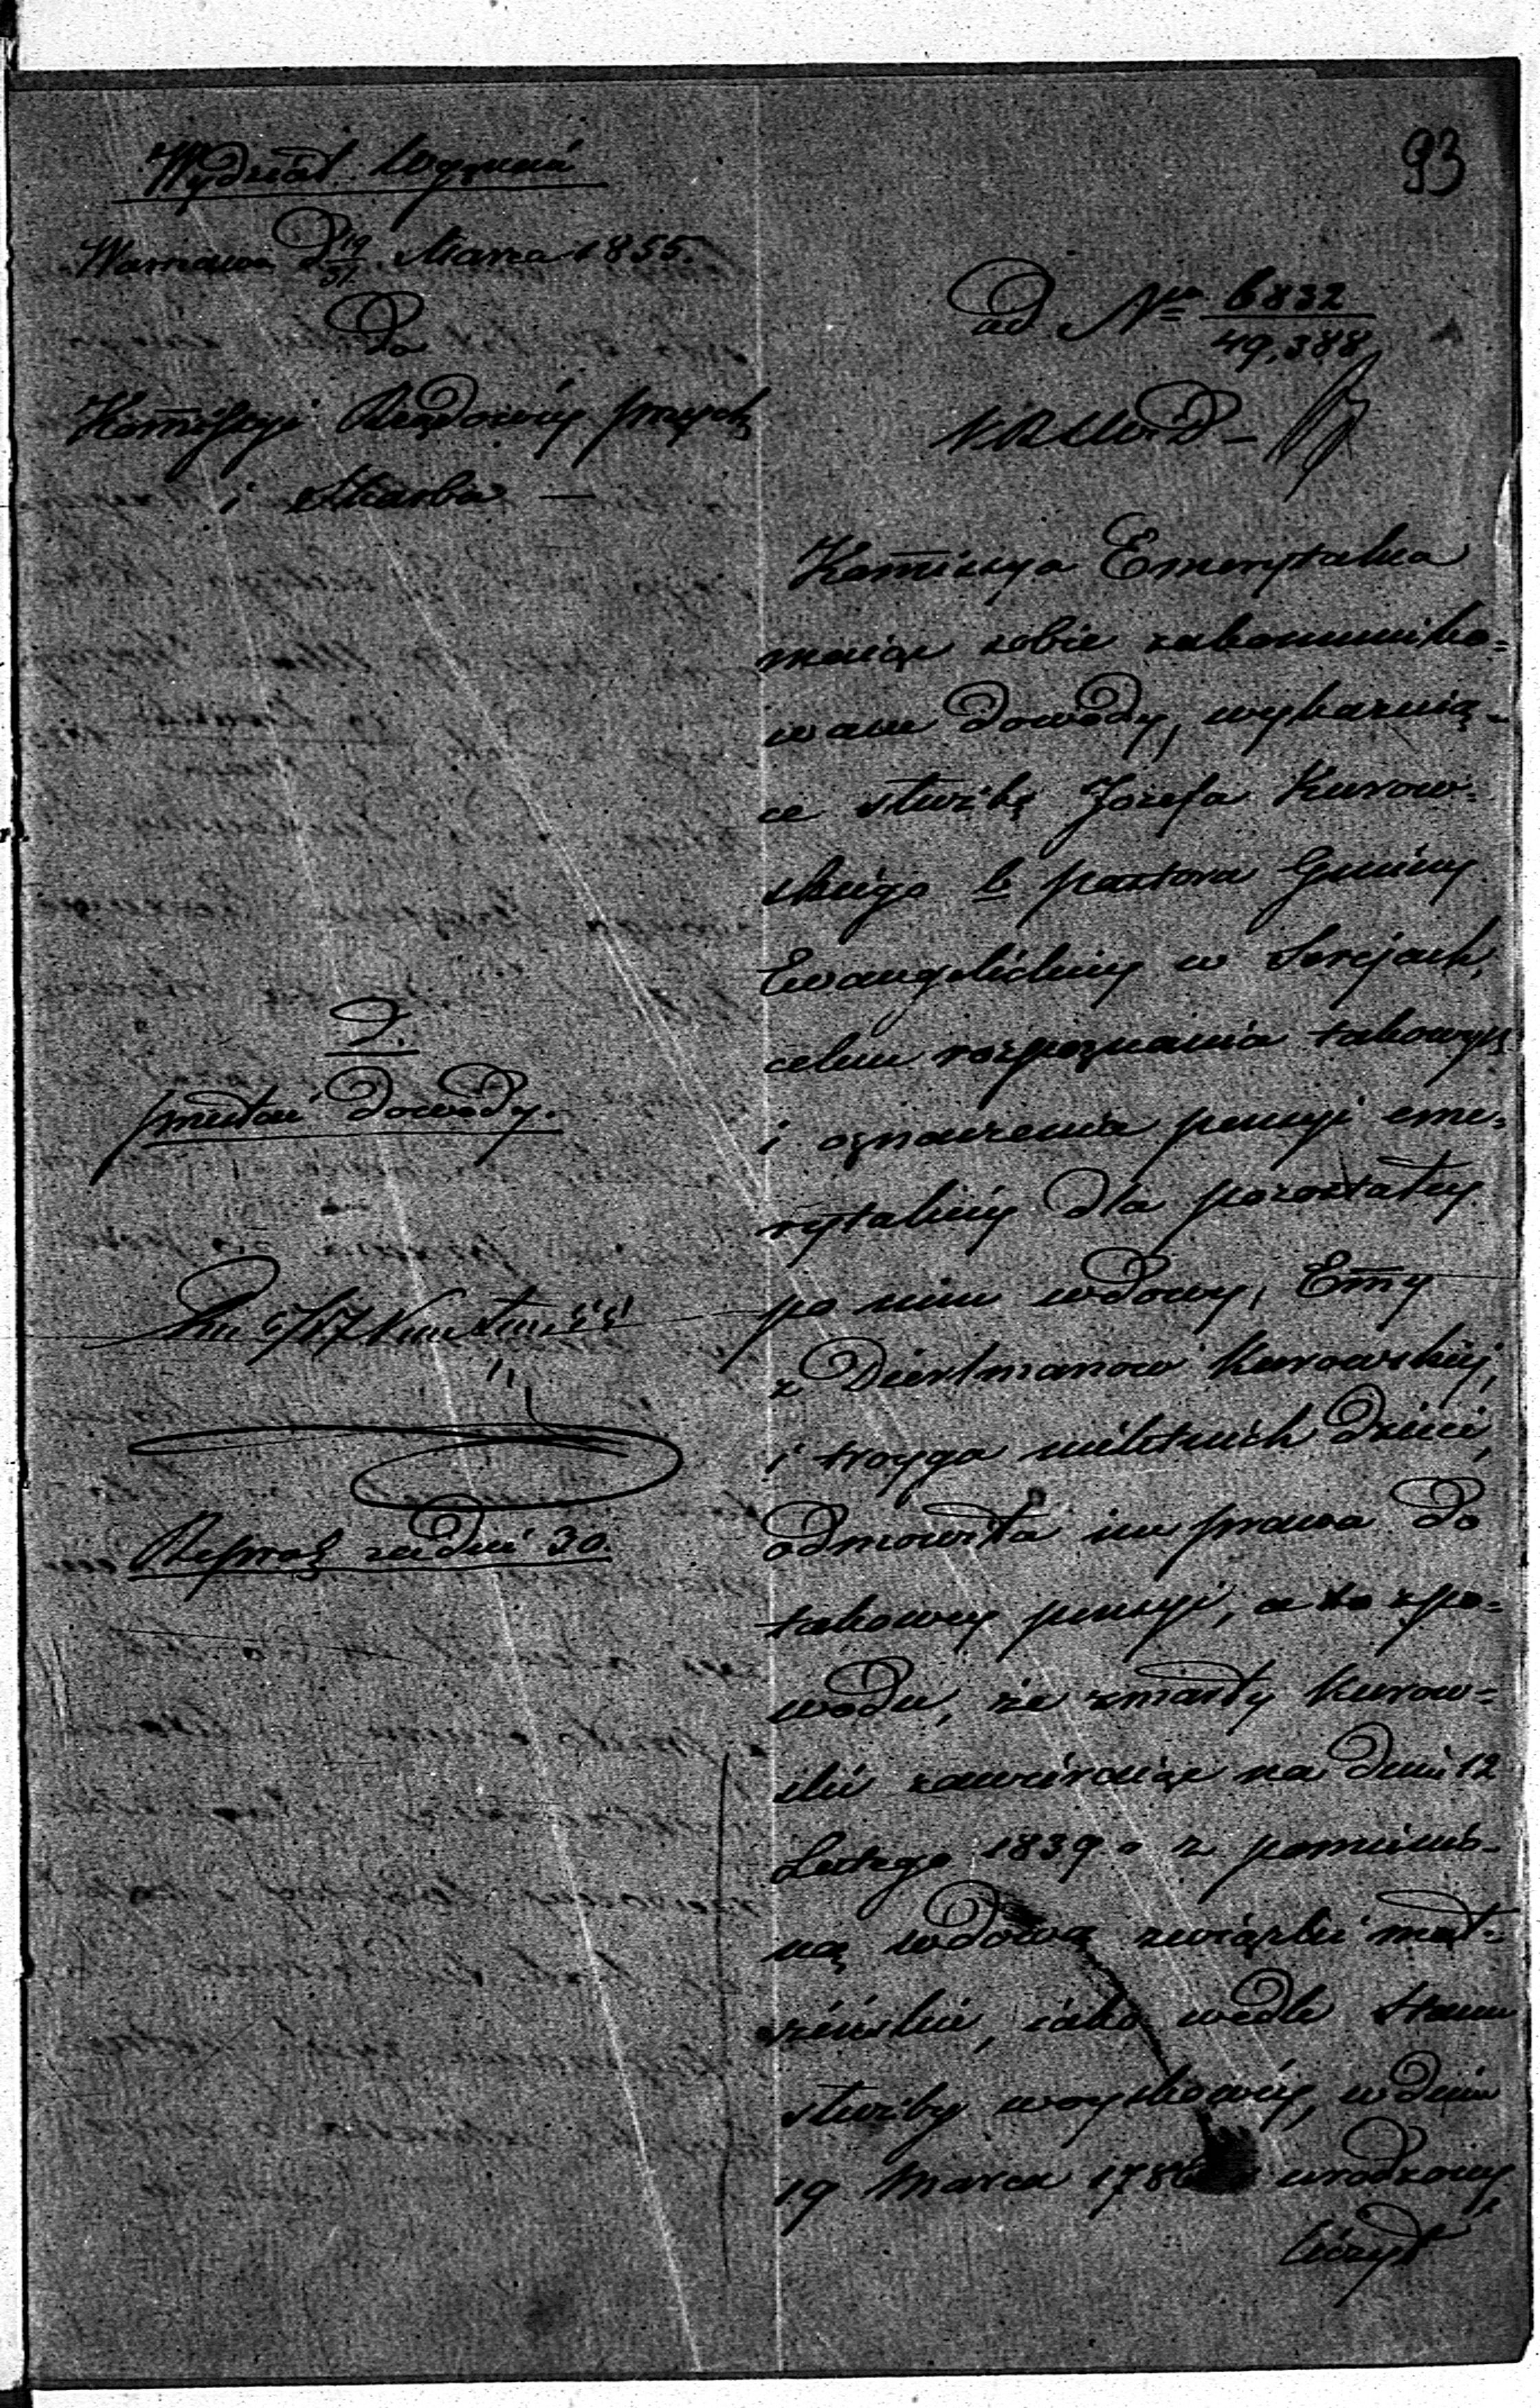 93
Wydział Wyznań
Warszawa D 19/31 Marca 1855.
Do
Kommissyi Rządowéy Przych:
i Skarbu —
ad Nra 6832/49,388
K.R.S.W.i D –
Kommissya Emerytalna
maiąc sobie zakommuniko=
wane dowody, wykazuią=
ce służbę Józefa Kurow=
skiego b. pastora Gminy
Ewangelickiey w Serejach,
celem rozpoznania takowych
i oznaczenia pensyi eme=
rytalnéy dla pozostałey
po nim wdowy, Emmy
z Kurowskiéj,
i troyga nieletnich dzieci,
odmówiła im prawa do
takowey pensyi, a to z po=
wodu, że zmarły Kurow=
ski zawieraiąc na dniu 12
Lutego 1839 r. z pomienio=
ną wdową związki mał=
żeńskie, iako wedle Stanu
służby woyskowéy, w dniu
19 Marca 178 urodzony,
liczył
D.
dowody.
Reprod: za dni 30.